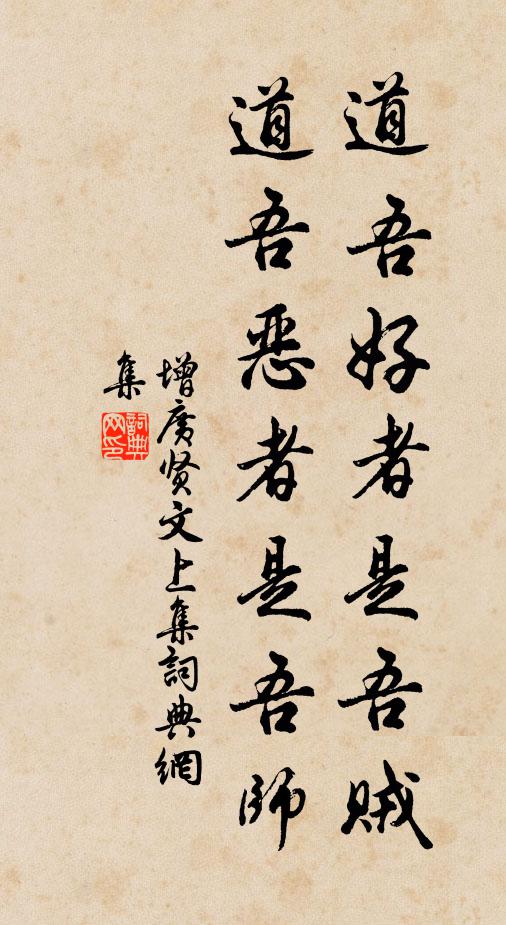 道吾好者是吾贼
道吾恶者是吾师
增廣贤文上集詞典網
集
詞典
网印